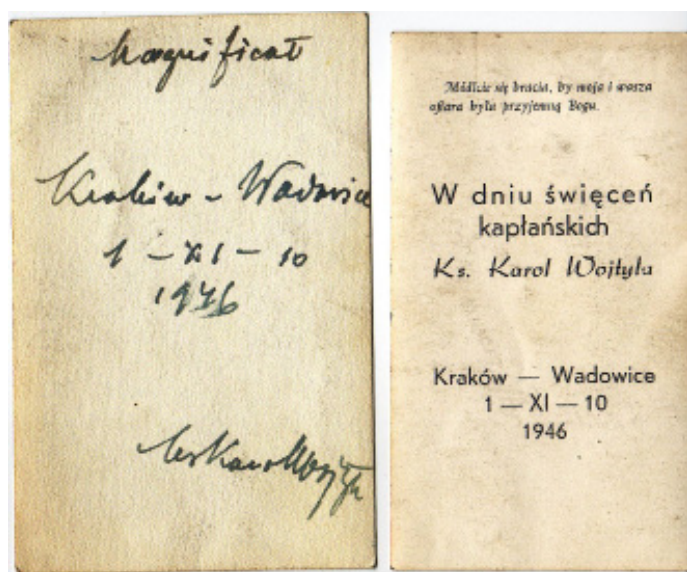 Magnificat
Kraków – Wadowice
1 – XI – 10
1946
ks Karol Wojtyła
Módlcie się bracia, by moja i wasza
ofiara była przyjemną Bogu.
W dniu święceń
kapłańskich
Ks. Karol Wojtyła
Kraków — Wadowice
1 — XI — 10
1946